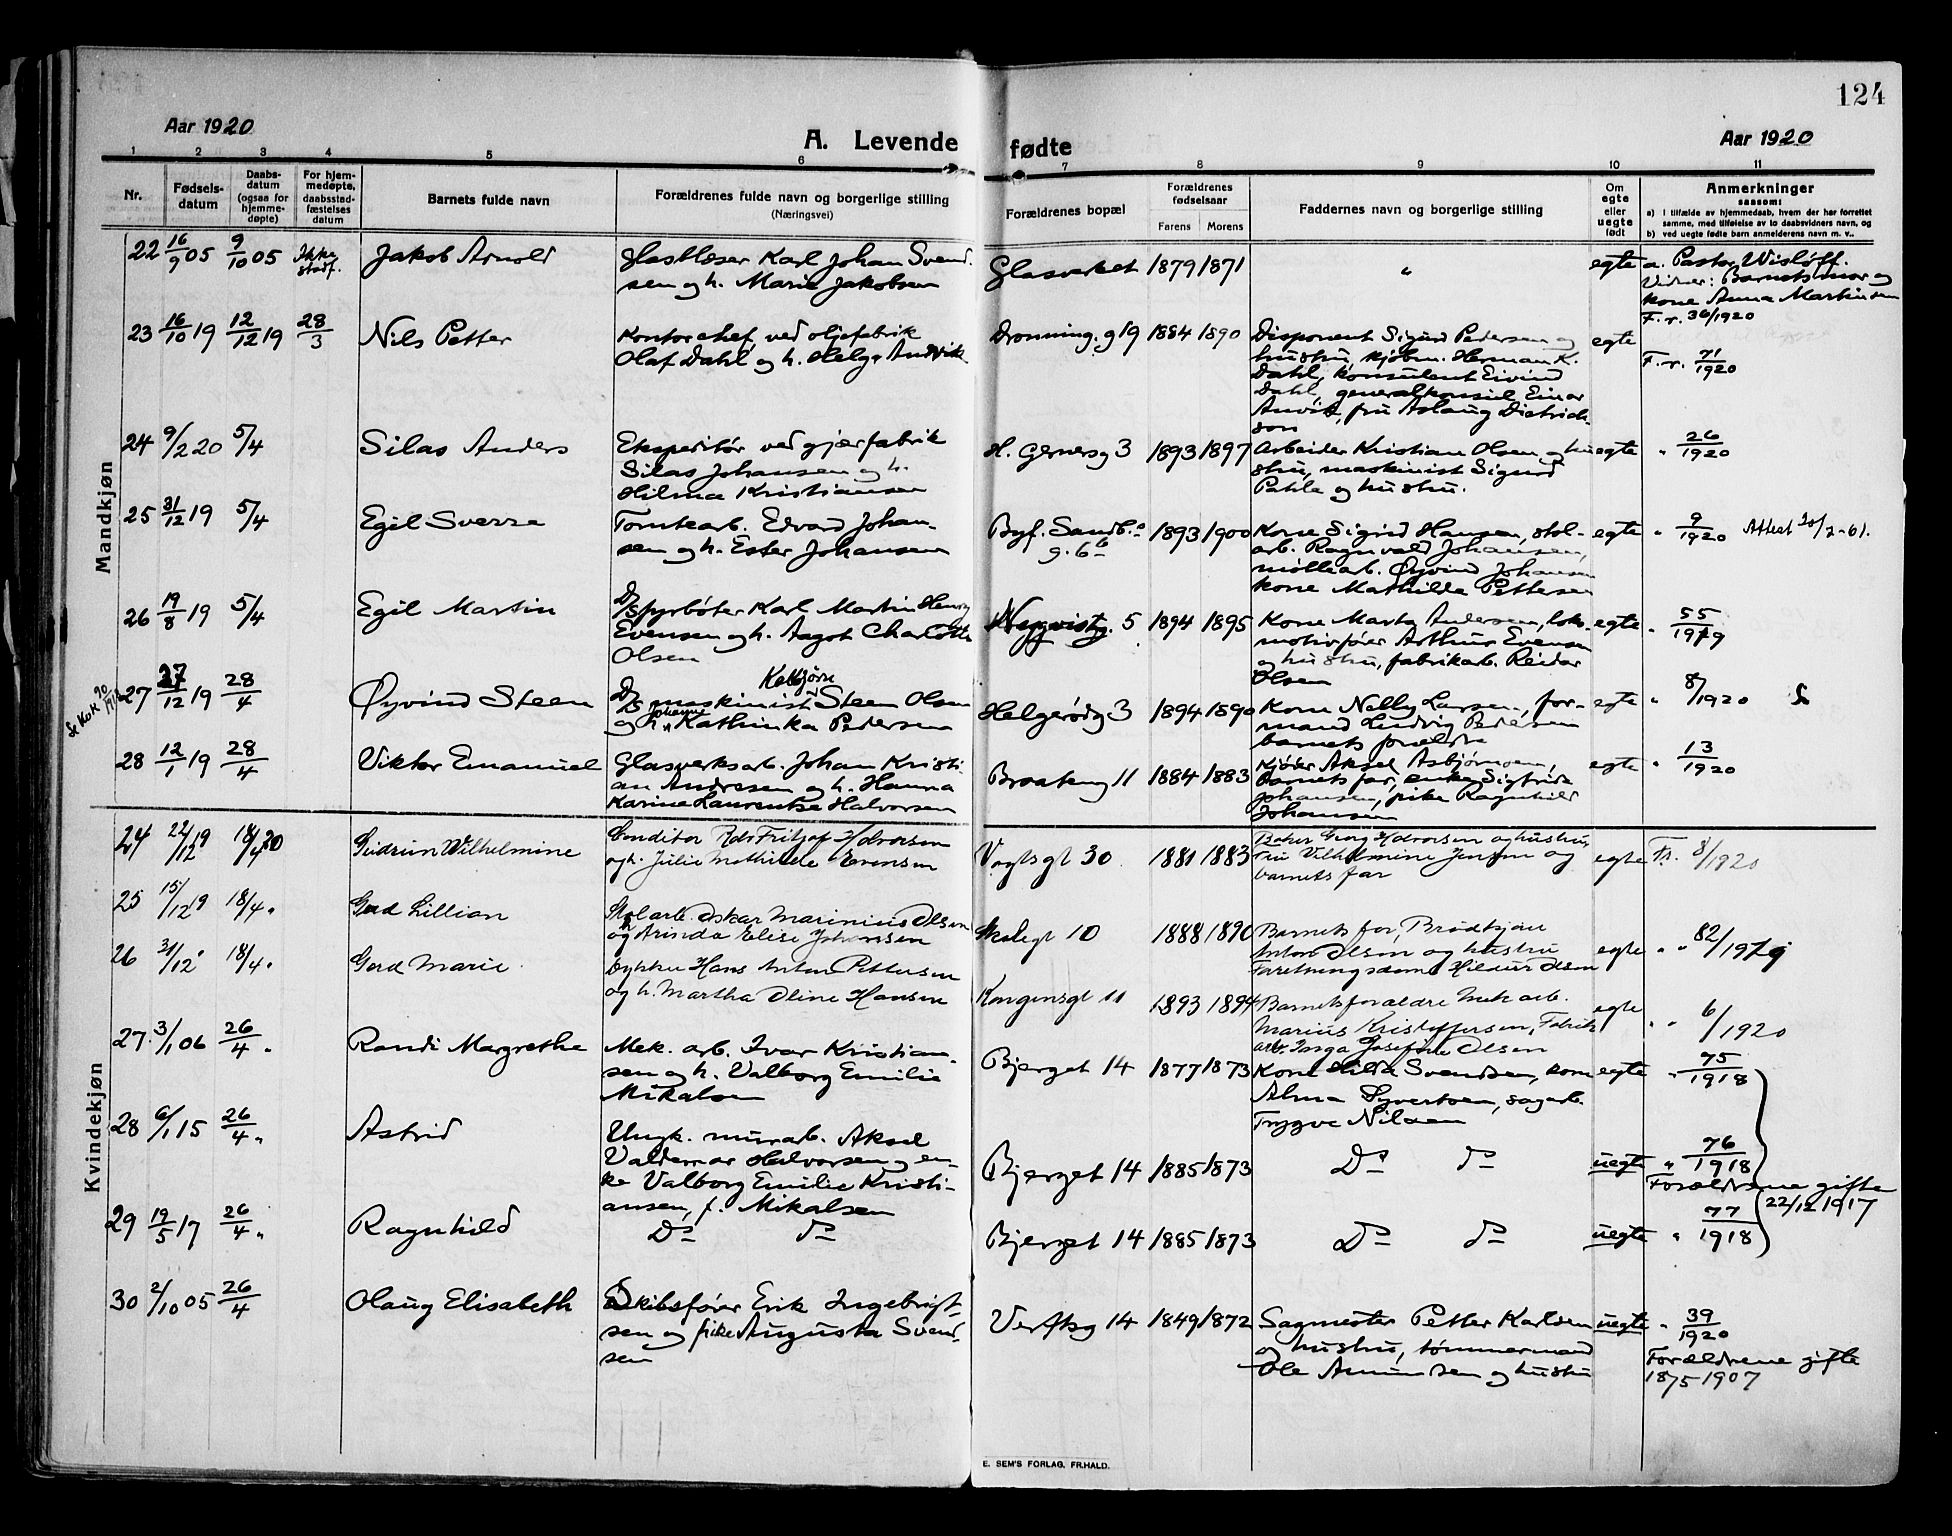 124
Aar 1920
A. Levende fødte
Aar 1920
1 2 3 4 5 6 7 8 9 10 11
Nr.
Fødsels-
datum
Daabs-
datum
(ogsaa for
hjemme-
døpte)
For hjem-
medøpte,
daabsstad-
fæstelses
datum
Barnets fulde navn
Forældrenes fulde navn og borgerlige stilling
(Næringsvei)
Forældrenes bopæl
Forældrenes
fødselsaar
Farens Morens
Faddernes navn og borgerlige stilling
Om
egte
eller
uegte
født
Anmerkninger
saasom:
a) I tilfælde av hjemmedaab, hvem der har forrettet
samme, med tilføielse av to daabsvidners navn, og
b) ved uegte fødte barn anmelderens navn m. v..
Mandkjøn
22 16/9 05 9/10 05 Ikke
stadf.
Jakob Arnold
Glasblæser Karl Johan Svend-
sen og h. Marie Jakobsen
Glasverket 1879 1871 " egte
a. Pastor Wisløff.
Vidner: Barnets mor og
kone Anna Martinsen
F. r. 36/1920
23 16/10 19 12/12 19 28/3
Nils Petter
Kontorchef ved oljefabrik
Olaf Dahl og h. Helga Andvik
Dronning. g 19 1884 1890
Disponent Sigurd Pedersen og
hustru, kjøbm. Herman K.
Dahl, konsulent Eivind
Dahl, generalkonsul Einar
Anvik, fru Aslaug Dietrich-
son
egte
F. r. 71/1920
24 9/2 20 5/4
Silas Anders
Ekspeditør ved gjærfabrik
Silas Johansen og h.
Hilma Kristiansen
H. Gernersg 3 1893 1897
Arbeider Kristian Olsen og hu-
stru, maskinist Sigurd
Pahle og hustru.
egte " 26/1920
25 31/12 19 5/4
Egil Sverre
Tomtearb. Edvard Johan-
sen og h. Ester Johansen
Byf. Sandb.
g. 6b 1893 1900
Kone Sigrid Hansen, stol-
arb. Ragnvald Johansen,
møllearb. Øyvind Johansen
kone Mathilde Pettersen
egte " 9/1920 Attest 20/2-61.
26 19/8 19 5/4
Egil Martin
D/S fyrbøter Karl Martin Henry
Evensen og h. Aagot Charlotte
Olsen
Nyqvistg. 5 1894 1895
Kone Marty Andersen, loko-
motivfører Arthur Evensen
og hustru, fabrikarb. Reidar
Olsen
egte " 55/1919
Se KoK 90/1918
27 27/12 19 28/4
Øyvind Steen
Kolbjørn
D/S maskinist Steen Olsen
Johanne
og h. Kathinka Pedersen
Helgerødg 3 1894 1890
Kone Nelly Larsen, for-
mand Ludvig Pedersen
barnets forældre
egte " 8/1920
28 12/1 19 28/4
Viktor Emanuel
Glasverksarb. Johan Kristi-
an Andresen og h. Hanna
Karine Laurentse Halvorsen
Braateng 11 1884 1883
Kjører Aksel Asbjørnsen,
barnets far, enke Sigfride
Johansen, pike Ragnhild
Johansen
egte " 13/1920
Kvindekjøn
24 22/12 19 18/4 20
Gudrun Wilhelmine
Conditor Adr Fritjof Halvorsen
og h. Julie Mathilde Evensen
Vogtsgt 30 1881 1883
Baker Georg Halvorsen og hustru,
Fru Vilhelmine Jensen og
barnets far
egte Fr. 8/1920
25 15/12 19 18/4 "
Gerd Lillian
Stolarb. Oskar Marinius Olsen
og Arinda Elise Johansen
Skolegt 10 1888 1890
Barnets far, Brødkjør
Anton Olsen og hustru
Forretningsdame Hildur Olsen
egte " " 82/1919
26 31/12 " 18/4 "
Gerd Marie
Dykker Hans Anton Pettersen
og h. Martha Oline Hansen
Kongensgt 11 1893 1894
Barnets forældre Mek arb.
Marius Kristoffersen, Fabrik
arb. Inga Josefine Olsen
egte " " 6/1920
27 3/1 06 26/4 "
Randi Margrethe
Mek. arb. Ivar Kristian-
sen og h. Valborg Emilie
Mikalsen
Bjerget 14 1877 1873
Kone Hilda Svendsen, kone
Alma Syvertsen, sagarb.
Trygve Nilsen
egte " 75/1918
28 6/1 15 26/4 "
Astrid
Ungk. murarb. Aksel
Valdemar Halvorsen og en-
ke Valborg Emilie Kristi-
ansen, f. Mikalsen
Bjerget 14 1885 1873 Do do uegte " 76/1918
Forældrene gifte
22/12 1917
29 19/5 17 26/4 "
Ragnhild
Do do
Bjerget 14 1885 1873 Do do uegte " 77/1918
30 2/10 05 26/4
Olaug Elisabeth
Skibsfører Erik Ingebrigt-
sen og pike Augusta Svend-
sen
Verftsg 14 1849 1872
Sagmester Petter Karlsen
og hustru, tømmermand
Ole Amundsen og hustru
uegte " 39/1920
Forældrene gifte
18/5 1907
E. SEM'S FORLAG, FR.HALD.